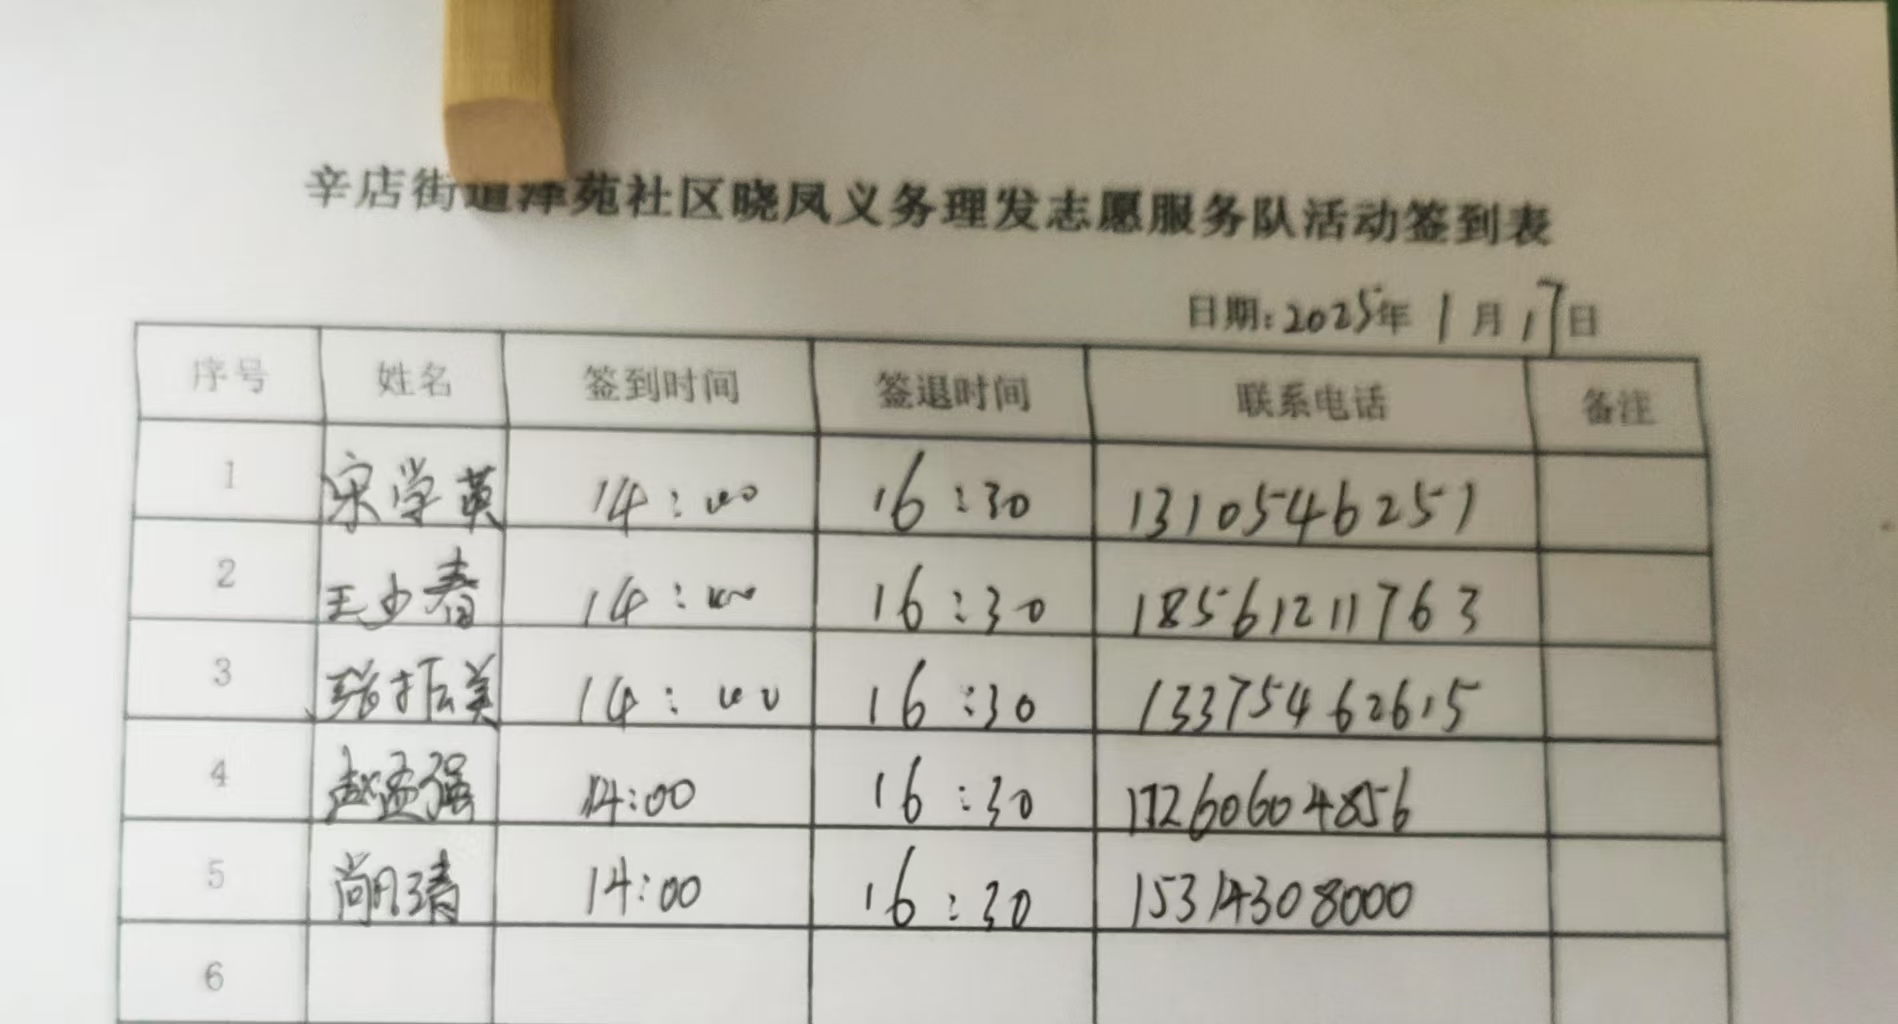 辛店街道泽苑社区晓凤义务理发志愿服务队活动签到表
日期:2025年 1月17日
序号 姓名 签到时间 签退时间 联系电话 备注
1 宋学英 14:00 16:30 13105462251
2 王少春 14:00 16:30 18561211763
3 张振美 14:00 16:30 13375462615
4 赵孟强 14:00 16:30 17260604856
5 尚 14:00 16:30 15314308000
6